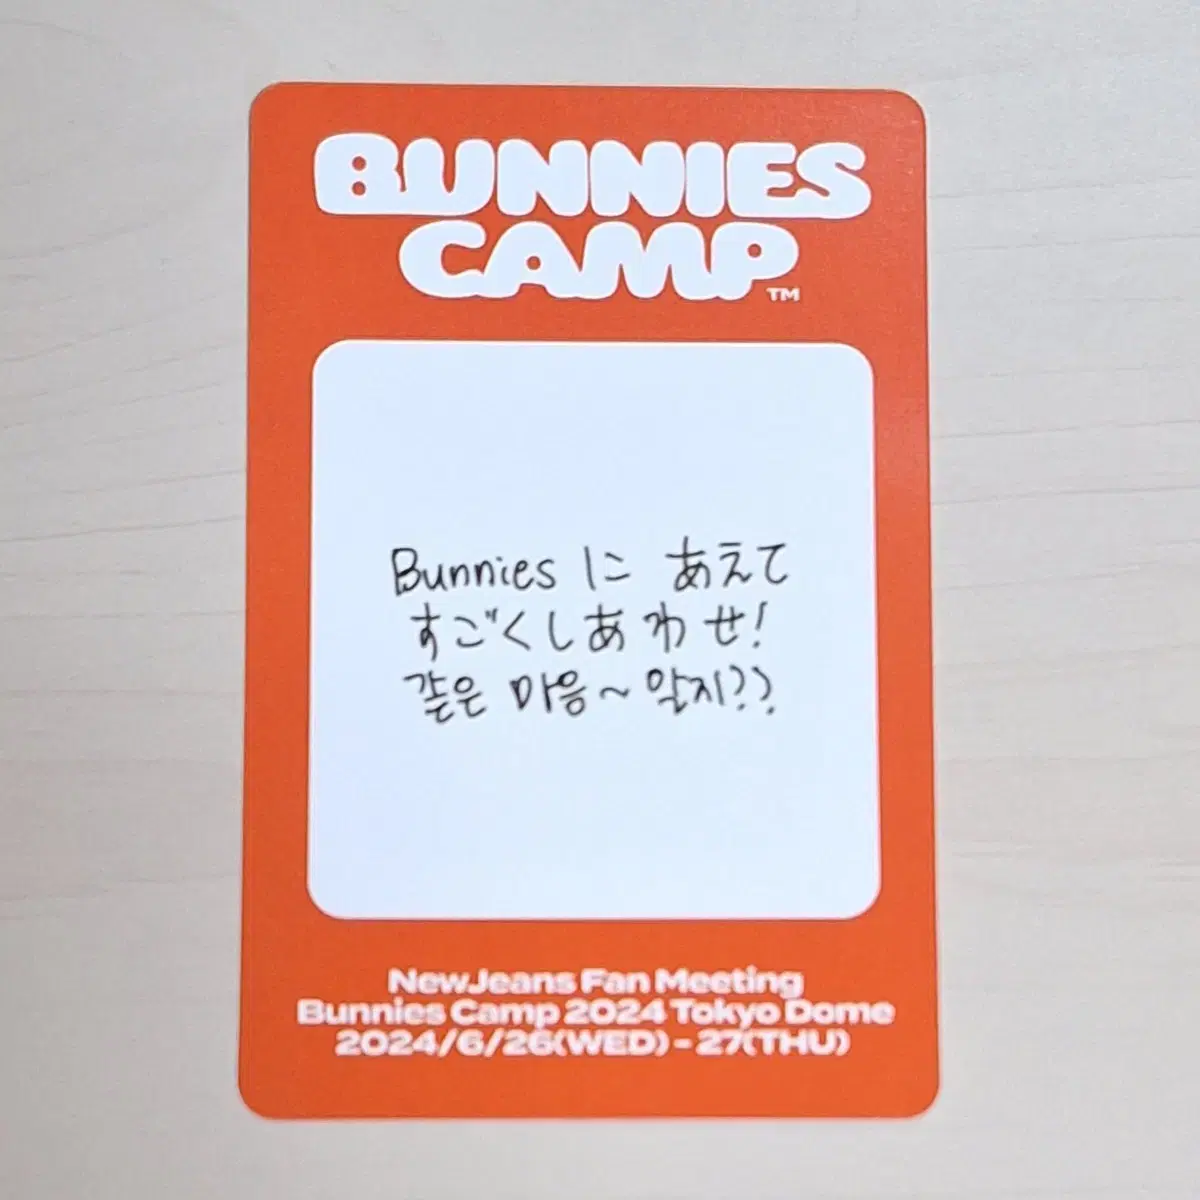 BUNNIES
CAMP™
Bunnies に あえて
すごくしあわせ!
같은 마음~ 알지??
NewJeans Fan Meeting
Bunnies Camp 2024 Tokyo Dome
2024/6/26(WED) - 27(THU)